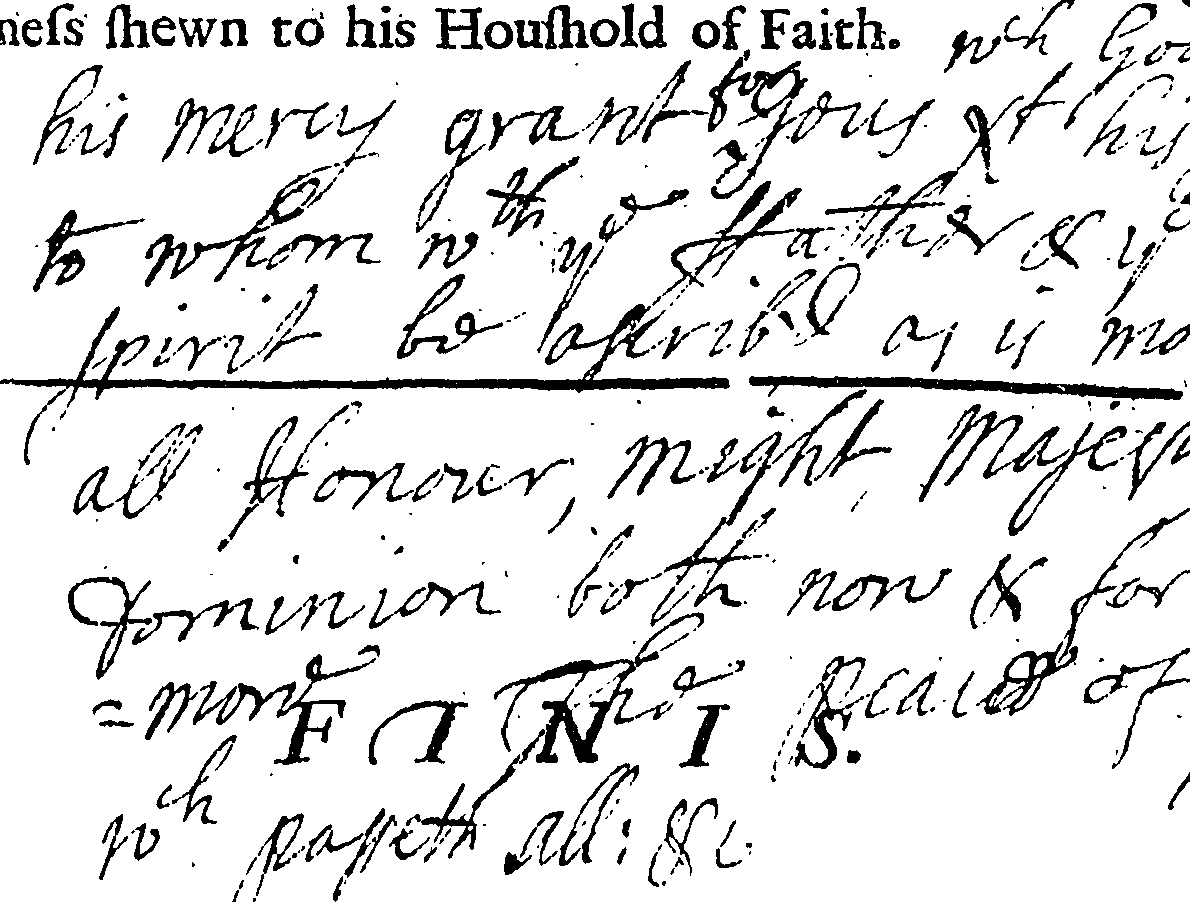 neſs ſhewn to his Houſhold of Faith. wch God
his mercy grant for Jesus Xt his
to whom wth ye ffather & ye
spirit be ascrib'd as is mo
all Honour, might, Majest
Dominion both now & for
=more The peace of
F I N I S.
wch passeth all: &c